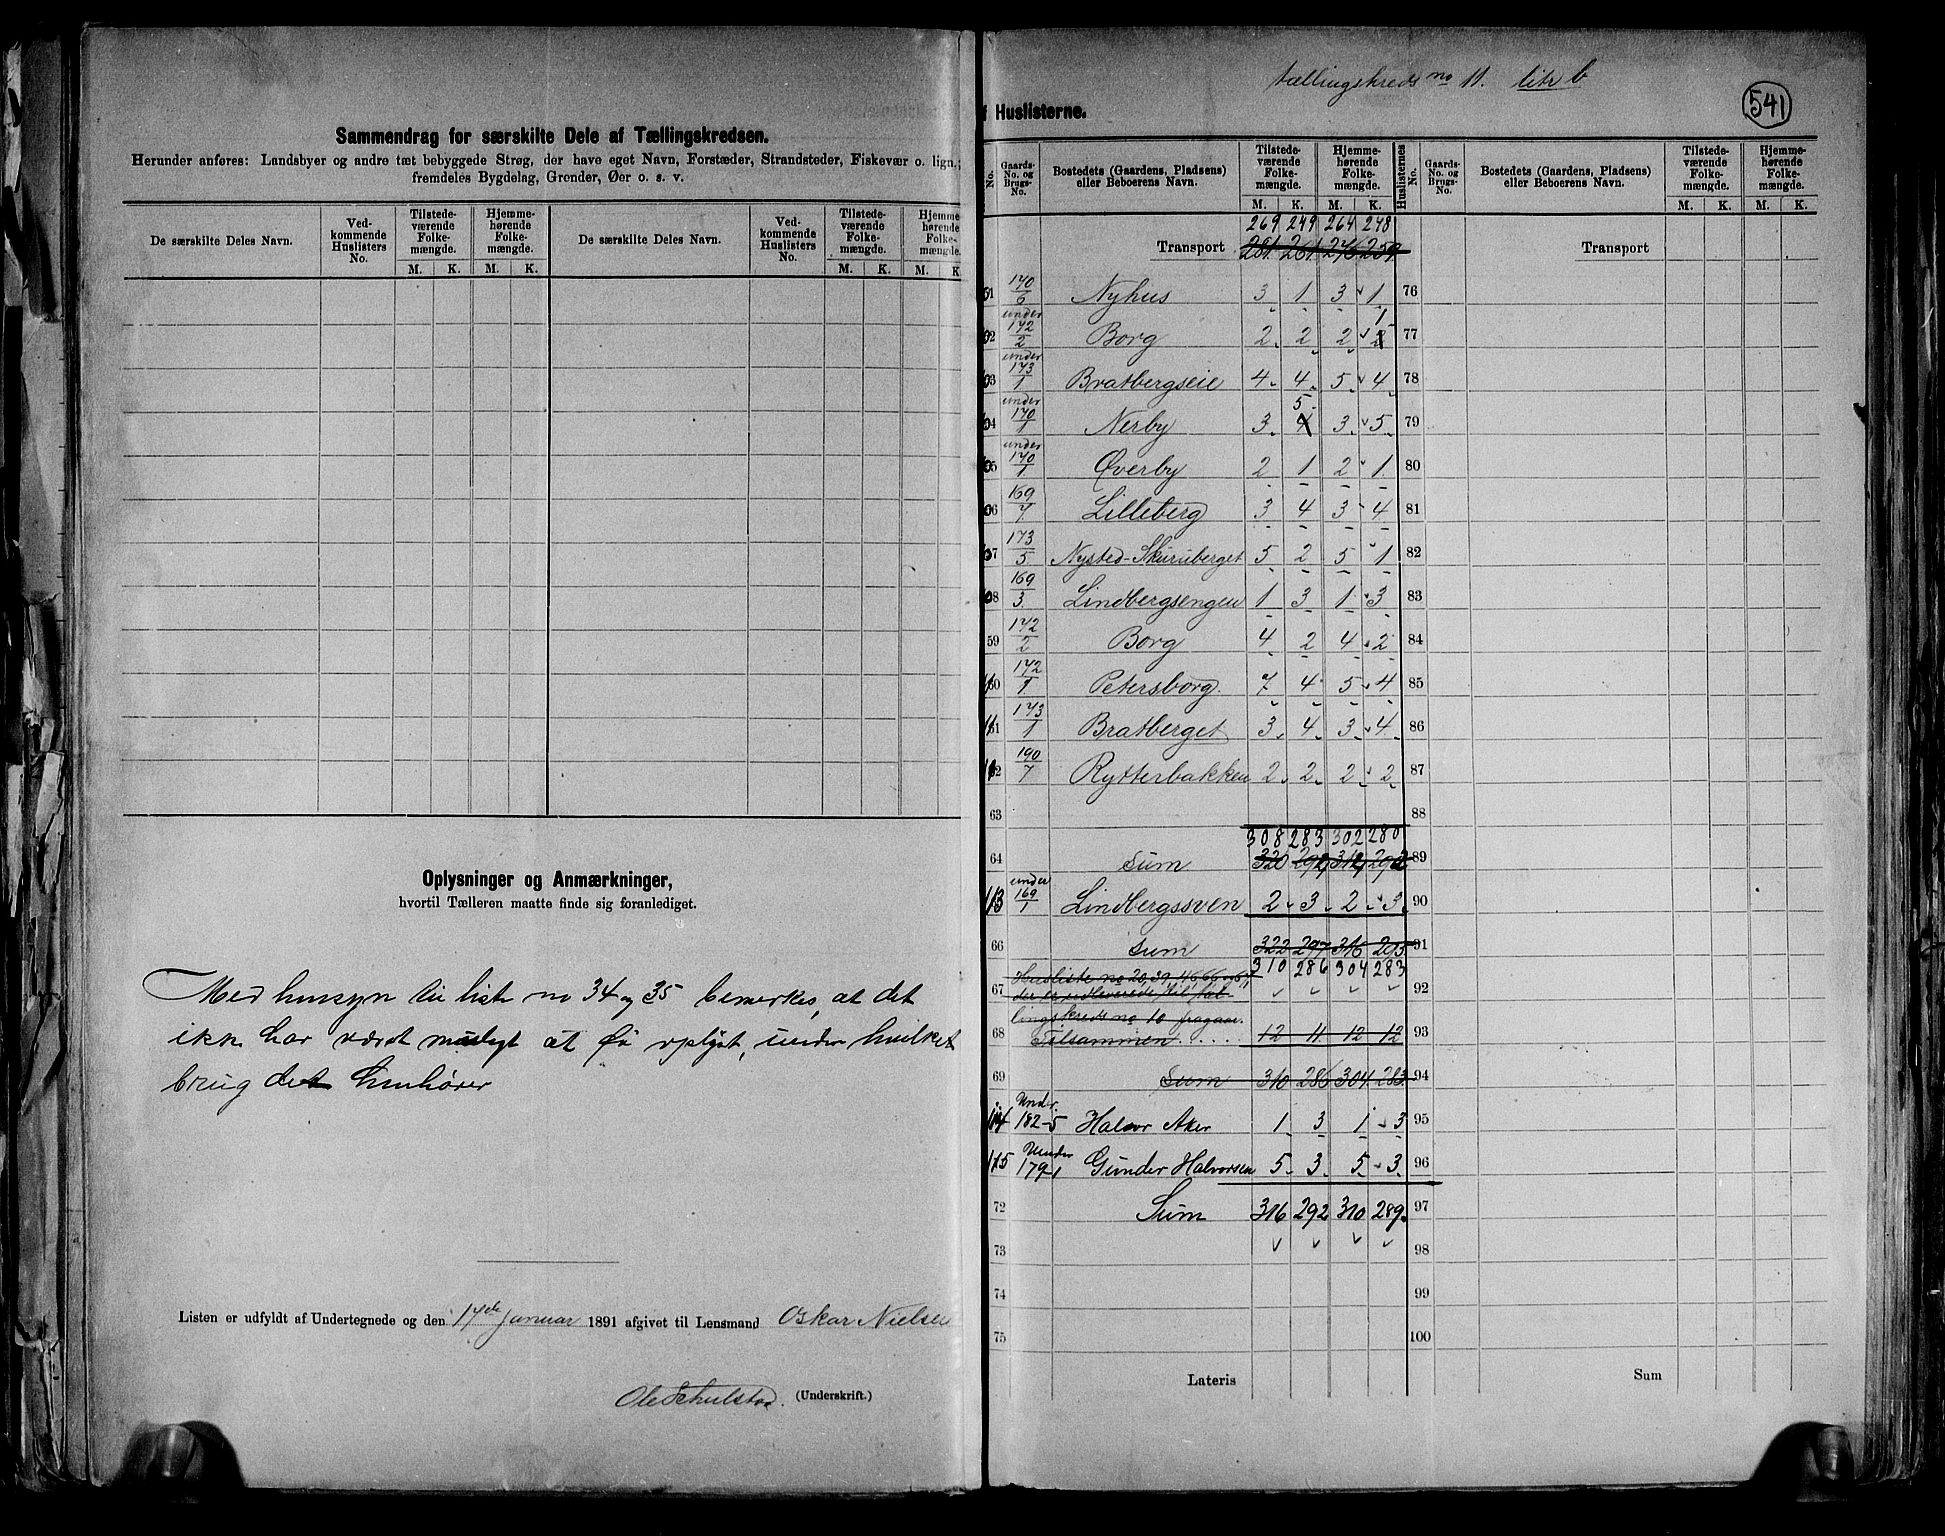 Sammendrag for særskilte Dele af Tællingskredsen.
Herunder anføres: Landsbyer og andre tæt bebyggede Strøg, der have eget Navn, Forstæder, Strandsteder, Fiskevær o. lign.;
fremdeles Bygdelag, Grender, Øer o. s. v.
De særskilte Deles Navn. Ved-kommende Huslisters No. Tilstede-værende Folke-mængde. Hjemme-hørende Folke-mængde. De særskilte Deles Navn. Ved-kommende Huslisters No. Tilstede-værende Folke-mængde. Hjemme-hørende Folke-mængde.
M. K. M. K. M. K. M. K.
Oplysninger og Anmærkninger,
hvortil Tælleren maatte finde sig foranlediget.
Med hensyn til liste no 34 og 35 bemerkes, at det
ikke har været muligt at få oplyst, under hvilket
brug det henhører
Listen er udfyldt af Undertegnede og den 17de januar 1891 afgivet til Lensmand Oskar Nielsen
Ole Schulstad. (Underskrift.)
tællingskreds no 11. litr b
541
f Huslisterne.
No. Gaards-No. og Brugs-No. Bostedets (Gaardens, Pladsens) eller Beboerens Navn. Tilstede-værende Folke-mængde. Hjemme-hørende Folke-mængde. Huslisternes No. Gaards-No. og Brugs-No. Bostedets (Gaardens, Pladsens) eller Beboerens Navn. Tilstede-værende Folke-mængde. Hjemme-hørende Folke-mængde.
M. K. M. K. M. K. M. K.
269 249 264 248
Transport 281 261 276 259 Transport
51 170/6 Nyhus 3 1 3 1 76
under 1
52 172/2 Borg 2 2 2 2 77
under
53 173/1 Bratbergseie 4 4 5 4 78
under 5
54 170/1 Nerby 3 4 3 5 79
under
55 170/1 Øverby 2 1 2 1 80
56 169/7 Lilleberg 3 4 3 4 81
57 173/5 Nysted-Skuruberget 5 2 5 1 82
58 169/3 Lindbergsengen 1 3 1 3 83
59 172/2 Borg 4 2 4 2 84
60 172/1 Petersborg 7 4 5 4 85
61 173/1 Bratberget 3 4 3 4 86
62 190/7 Rytterbakken 2 2 2 2 87
63 88
308 283 302 280
64 Sum 320 89
under
113 169/1 Lindbergssven 2 3 2 3 90
66 Sum 322 297 316 293 91
310 286 304 283
Husliste no 20, 39, 46, 66 og 67,
67 der er udleverede til tæl 92
lingskreds no 10 fragaar.
68 Tilsammen 12 11 12 12 93
69 Sum 310 286 304 283 94
Under
114 182-5 Halvor Aker 1 3 1 3 95
Under
115 179-1 Gunder Halvorsen 5 3 5 3 96
72 Sum 316 292 310 289 97
73 98
74 99
75 100
Lateris Sum